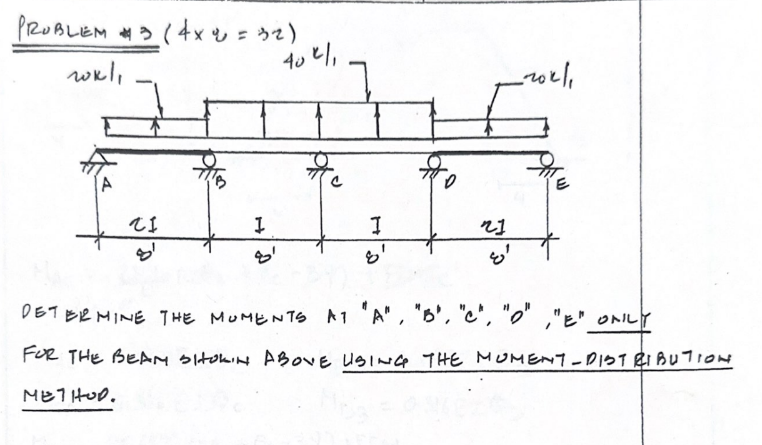 PROBLEM #3 (4 x 8 = 32)
40 k/,
20k/, 20k/,
A B C D E
2I I I 2I
8' 8' 8' 8'
DETERMINE THE MOMENTS AT "A", "B", "C", "D", "E" ONLY
FOR THE BEAM SHOWN ABOVE USING THE MOMENT-DISTRIBUTION
METHOD.